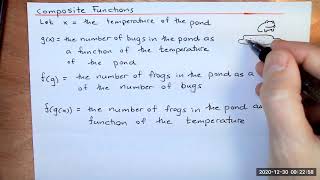 Composite Functions
Let x = the temperature of the pond
g(x) = the number of bugs in the pond as
a function of the temperature
of the pond
f(g) = the number of frogs in the pond as a
of the number of bugs
f(g(x)) = the number of frogs in the pond as
function of the temperature
2020-12-30 09:22:58